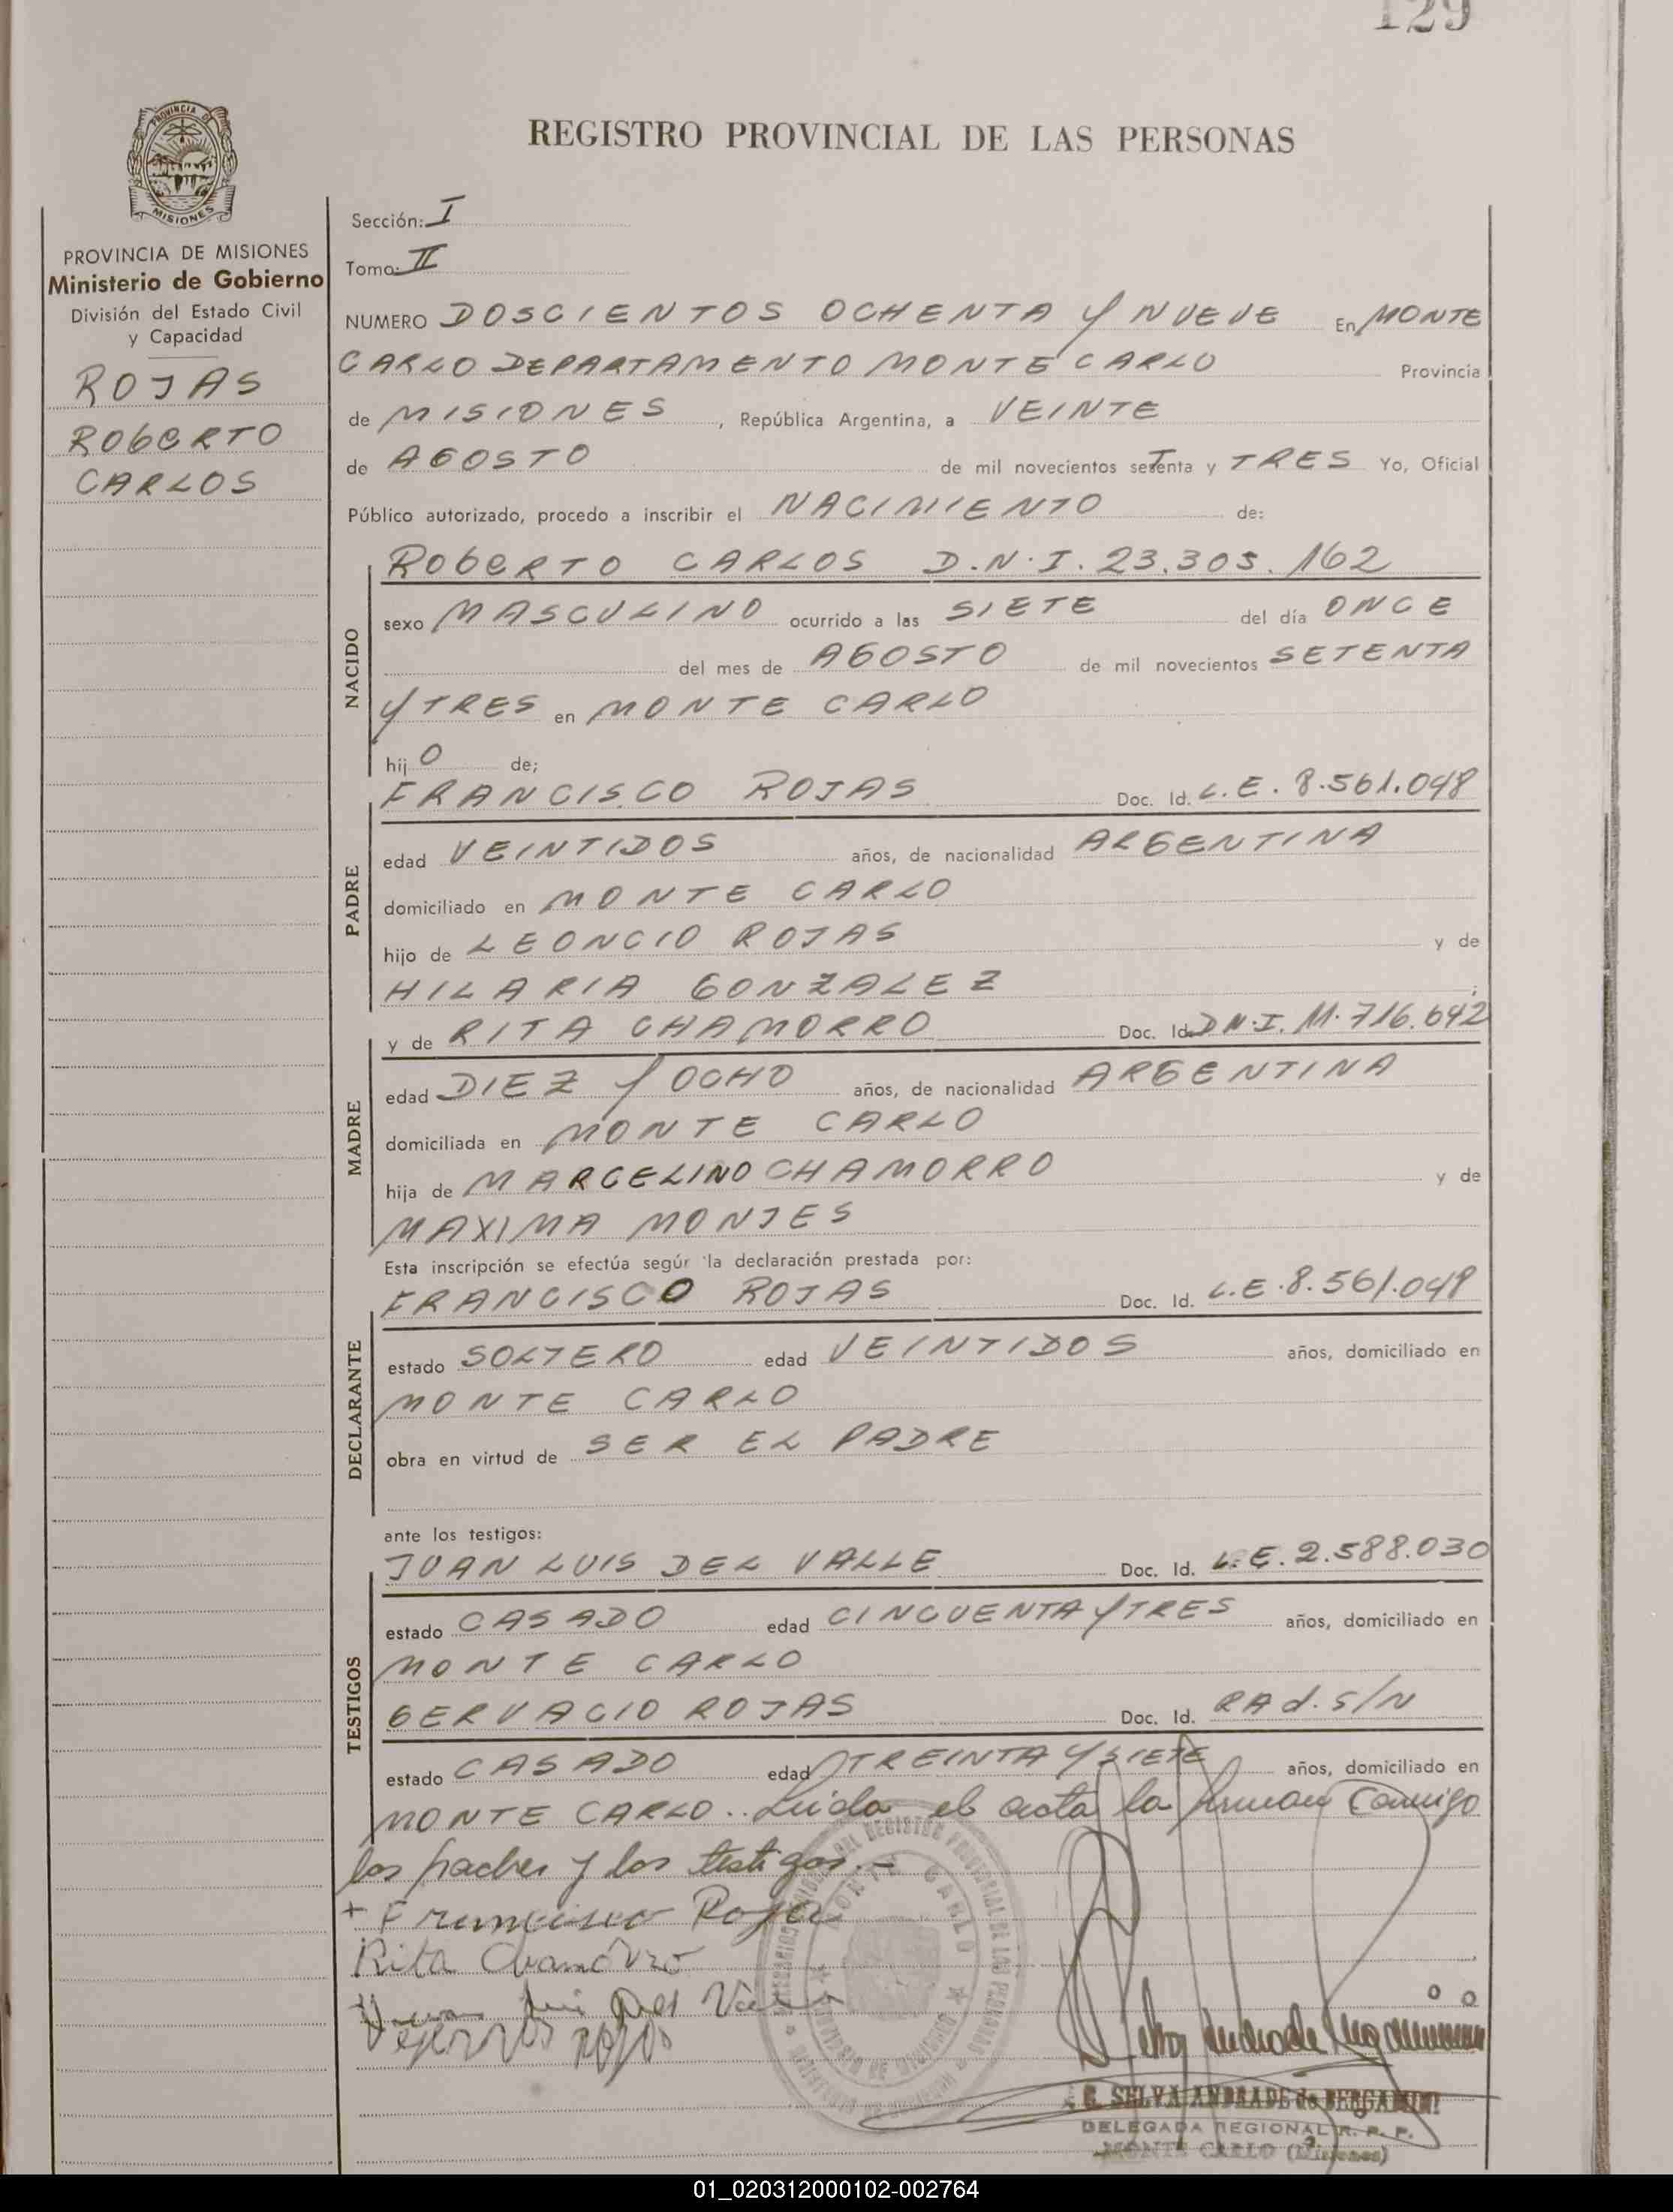 129
REGISTRO PROVINCIAL DE LAS PERSONAS
PROVINCIA DE MISIONES
PROVINCIA DE MISIONES
Ministerio de Gobierno
División del Estado Civil
y Capacidad
ROJAS
ROBERTO
CARLOS
Sección: I
Tomo: II
NUMERO DOSCIENTOS OCHENTA Y NUEVE En MONTE
CARLO DEPARTAMENTO MONTE CARLO Provincia
de MISIONES, República Argentina, a VEINTE
de AGOSTO de mil novecientos setenta y TRES Yo, Oficial
Público autorizado, procedo a inscribir el NACIMIENTO de:
NACIDO
ROBERTO CARLOS D.N.I. 23.303.162
sexo MASCULINO ocurrido a las SIETE del día ONCE
del mes de AGOSTO de mil novecientos SETENTA
Y TRES en MONTE CARLO
hij O de;
PADRE
FRANCISCO ROJAS Doc. Id. L.E. 8.561.048
edad VEINTIDOS años, de nacionalidad ARGENTINA
domiciliado en MONTE CARLO
hijo de LEONCIO ROJAS y de
HILARIA GONZALEZ ;
MADRE
y de RITA CHAMORRO Doc. Id. D.N.I. 11.716.642
edad DIEZ Y OCHO años, de nacionalidad ARGENTINA
domiciliada en MONTE CARLO
hija de MARCELINO CHAMORRO y de
MAXIMA MONJES
Esta inscripción se efectúa según la declaración prestada por:
DECLARANTE
FRANCISCO ROJAS Doc. Id. L.E. 8.561.048
estado SOLTERO edad VEINTIDOS años, domiciliado en
MONTE CARLO
obra en virtud de SER EL PADRE
ante los testigos:
TESTIGOS
JUAN LUIS DEL VALLE Doc. Id. L.E. 2.588.030
estado CASADO edad CINCUENTA Y TRES años, domiciliado en
MONTE CARLO
GERVACIO ROJAS Doc. Id. RAd. S/N
estado CASADO edad TREINTA Y SIETE años, domiciliado en
MONTE CARLO.. Leida el acta la firman Conmigo
los padres y los testigos.-
+ Francisco Rojas
Rita Chamorro
Juan Luis Del Valle
Rojas
MONTE CARLO
SELVA ANDRADE de BERGAMINI
DELEGADA REGIONAL R. P. P.
MONTE CARLO (Misiones)
01_020312000102-002764